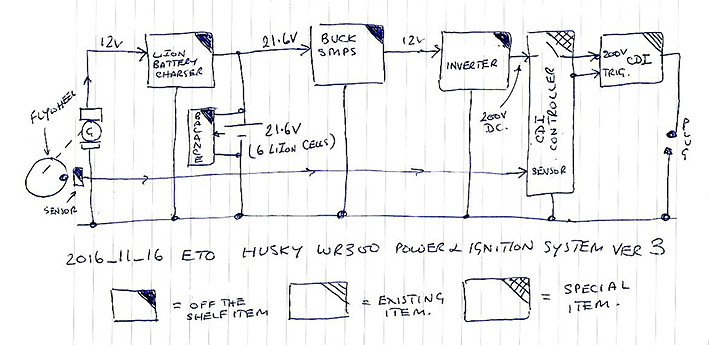 12V
LION
BATTERY
CHARGER
21.6V
BUCK
SMPS
12V
INVERTER
200V
DC.
CDI
CONTROLLER
SENSOR
200V
CDI
TRIG.
PLUG
FLYWHEEL
G
SENSOR
BALANCE
21.6V
(6 LION CELLS)
2016_11_16 ETO HUSKY WR360 POWER & IGNITION SYSTEM VER 3
= OFF THE
SHELF ITEM
= EXISTING
ITEM.
= SPECIAL
ITEM.